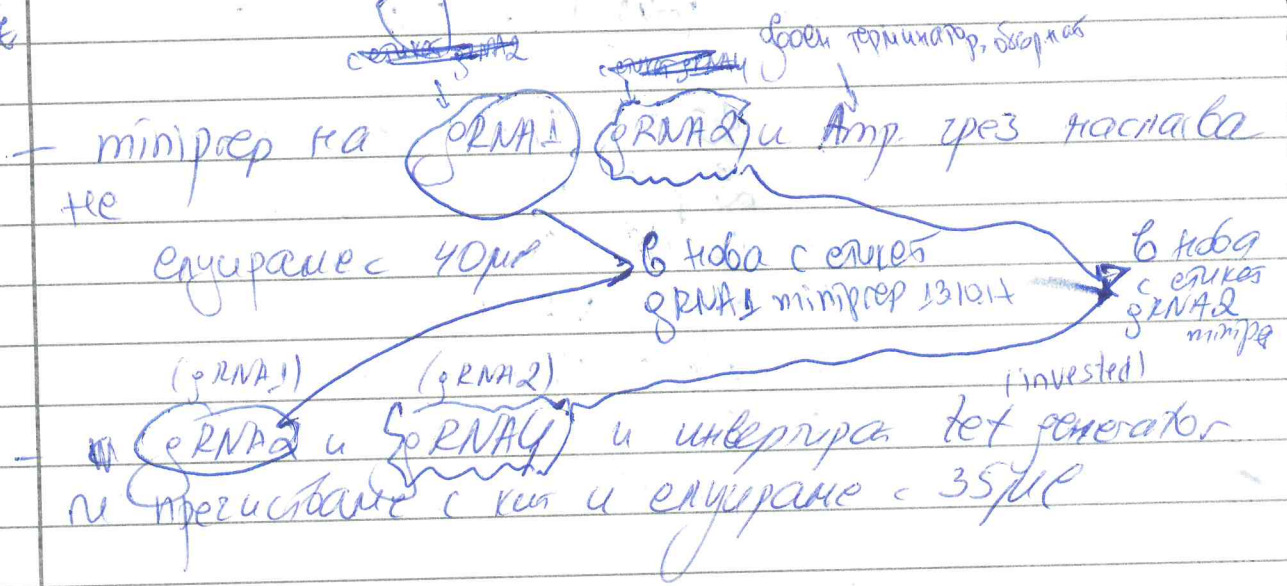 с етикет gRNA2
с етикет gRNA4
двоен терминатор, обърнат
- miniprep на gRNA1 gRNA2 и Amp. чрез наслаива
не
елуираме с 40 μl
в нова с етикет
gRNA1 miniprep 131017
в нова
с етикет
gRNA2
minipre
(gRNA1) (gRNA2) (invested)
- gRNA2 и gRNA4 и инвертиран tet generator
и пречистваме с кит и елуираме с 35 μl